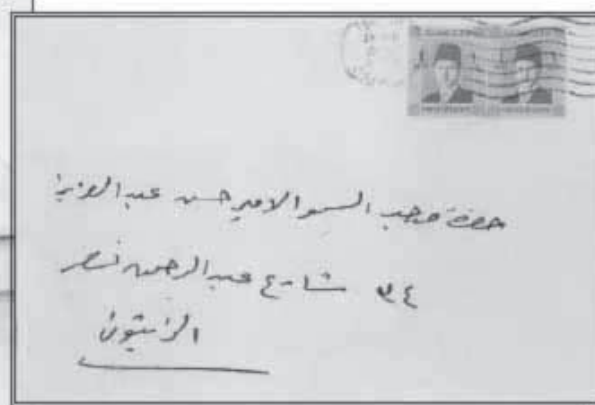 حضرة صاحب السمو الامير حسن عبد العزيز
٣٤ شارع عبد الرحمن نصر
الزيتون